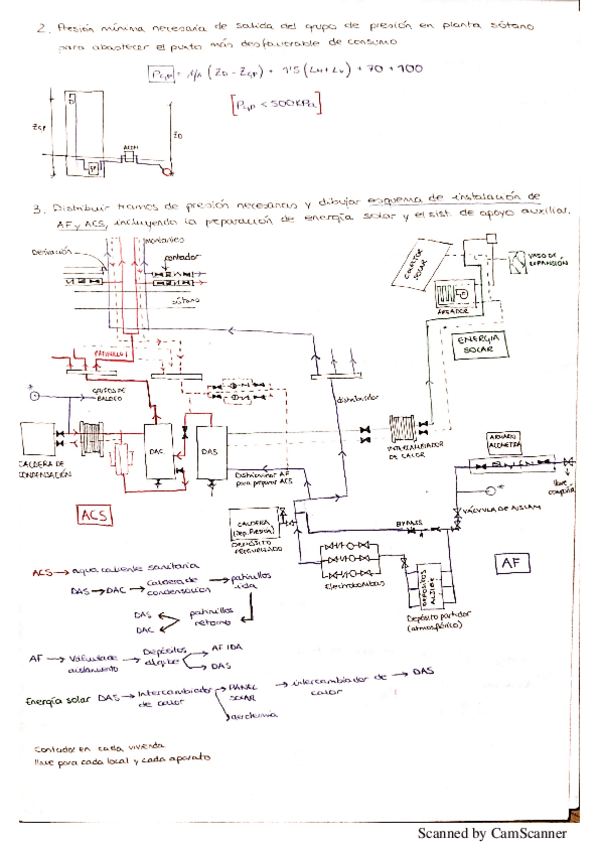 2. Presión mínima necesaria de salida del grupo de presión en planta sótano
para abastecer el punto más desfavorable de consumo
+ 1'15 (LH+LV) + 70 + 100
[PGP < 500 KPa]
ZGP
ZD
GP
3. Distribuir tramos de presión necesarios y dibujar esquema de instalación de
AF y ACS, incluyendo la preparación de energía solar y el sist. de apoyo auxiliar.
montantes
Derivación
contador
sótano
COLECTOR
SOLAR
VASO DE
EXPANSIÓN
AIREADOR
ENERGÍA
SOLAR
PATINILLO 1
GRIFOS DE
BALDEO
distribuidor
CALDERA DE
CONDENSACIÓN
DAC
DAS
INTERCAMBIADOR
DE CALOR
ARMARIO
ACOMETIDA
llave
compañía
Distribuidor AF
para preparar ACS
ACS
CALDERA
(Dep. Presión)
DEPÓSITO
BYPASS
VÁLVULA DE AISLAM
AF
Electrobombas
DEPÓSITOS
ALJIBE
Depósito partidor
(atmosférico)
ACS → agua caliente sanitaria
DAS → DAC → Caldera de condensación → patinillos ida
DAS
DAC
patinillos
retorno
AF → Válvula de aislamiento → Depósitos aljibe
AF IDA
DAS
Energía solar DAS → Intercambiador de calor → PANEL SOLAR → intercambiador de calor → DAS
aerotermia
Contador en cada vivienda
llave para cada local y cada aparato
Scanned by CamScanner